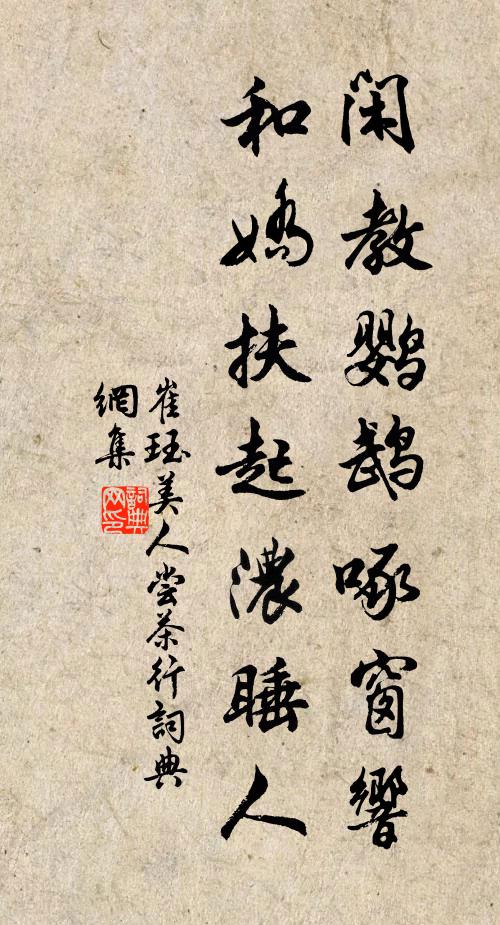 閑教鹦鹉啄窗響
和嬌扶起濃睡人
崔珏美人尝茶行詞典
網集
詞典
网印